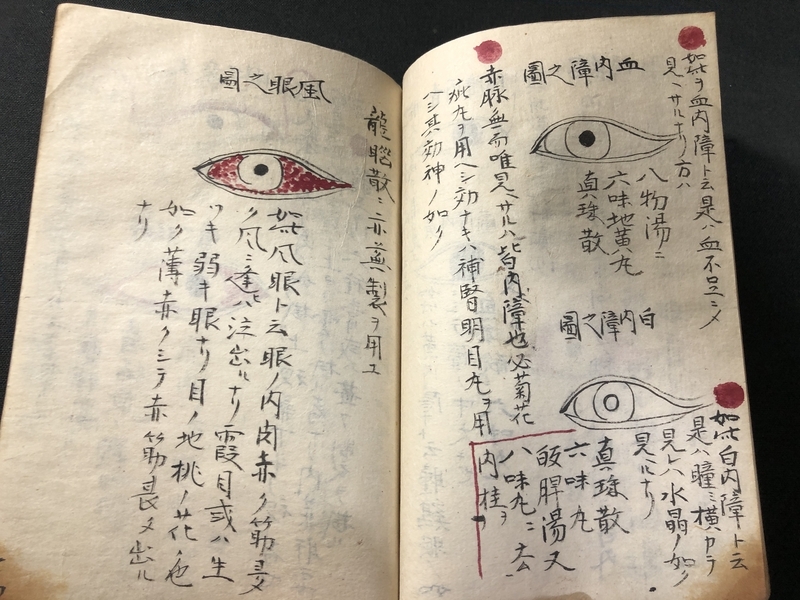 血内障之圖
如此ヲ血内障ト云是ハ血不足ニメ
見ヘサルナリ方ハ
八物湯ニ
六味地黄丸
真珠散
白内障之圖
如此白内障ト云
是ハ瞳ニ横カラ
見ハ水晶ノ如ク
見ユルナリ
真珠散
六味丸
皈脾湯又
八味丸ニ去
内桂ヲ
赤脉無而唯見ヘサルハ皆内障也必菊花
丸ヲ用ヘシ効ナキハ補腎明目丸ヲ用
ヘシ其効神ノ如シ
龍脳散ニ亦兼製ヲ用ユ
風眼之圖
如此風眼ト云眼ノ内肉赤ク筋長メ
風ニ逢ヘハ泣出ルナリ霞目或ハ生
ツキ弱キ眼ナリ目ノ地桃ノ花ノ色
如ク薄赤クシテ赤筋長メ出ル
ナリ